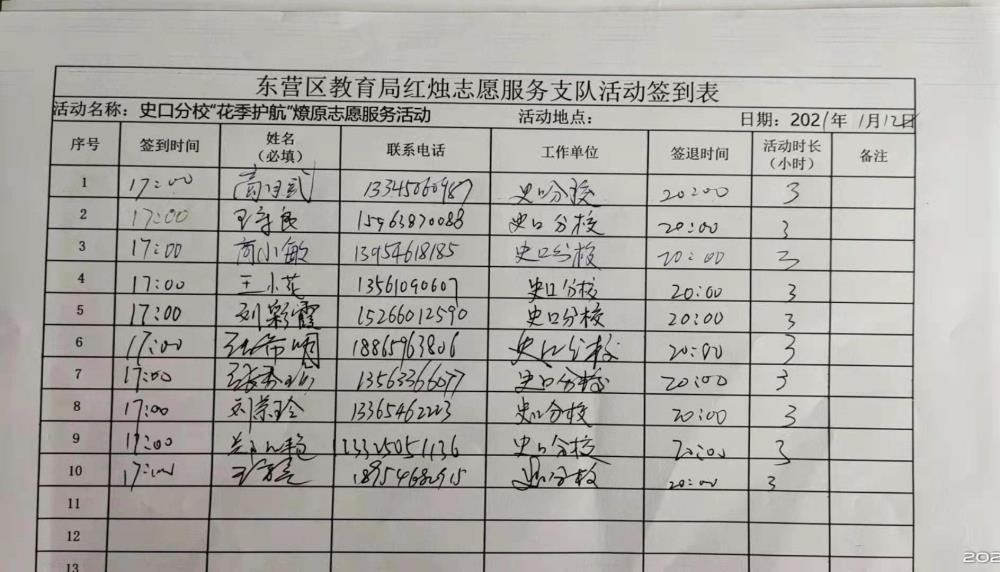 东营区教育局红烛志愿服务支队活动签到表
活动名称：史口分校“花季护航”燎原志愿服务活动 活动地点： 日期：2021年1月12日
序号 签到时间 姓名（必填） 联系电话 工作单位 签退时间 活动时长（小时） 备注
1 17:00 13345060987 史口分校 20:00 3
2 17:00 15963870088 史口分校 20:00 3
3 17:00 高小敏 13954618185 史口分校 20:00 3
4 17:00 王小花 13561090607 史口分校 20:00 3
5 17:00 刘彩霞 15266012590 史口分校 20:00 3
6 17:00 18865963806 史口分校 20:00 3
7 17:00 13563366077 史口分校 20:00 3
8 17:00 刘荣玲 13365462223 史口分校 20:00 3
9 17:00 13325051136 史口分校 20:00 3
10 17:00 史口分校 20:00 3
11
12
13
202